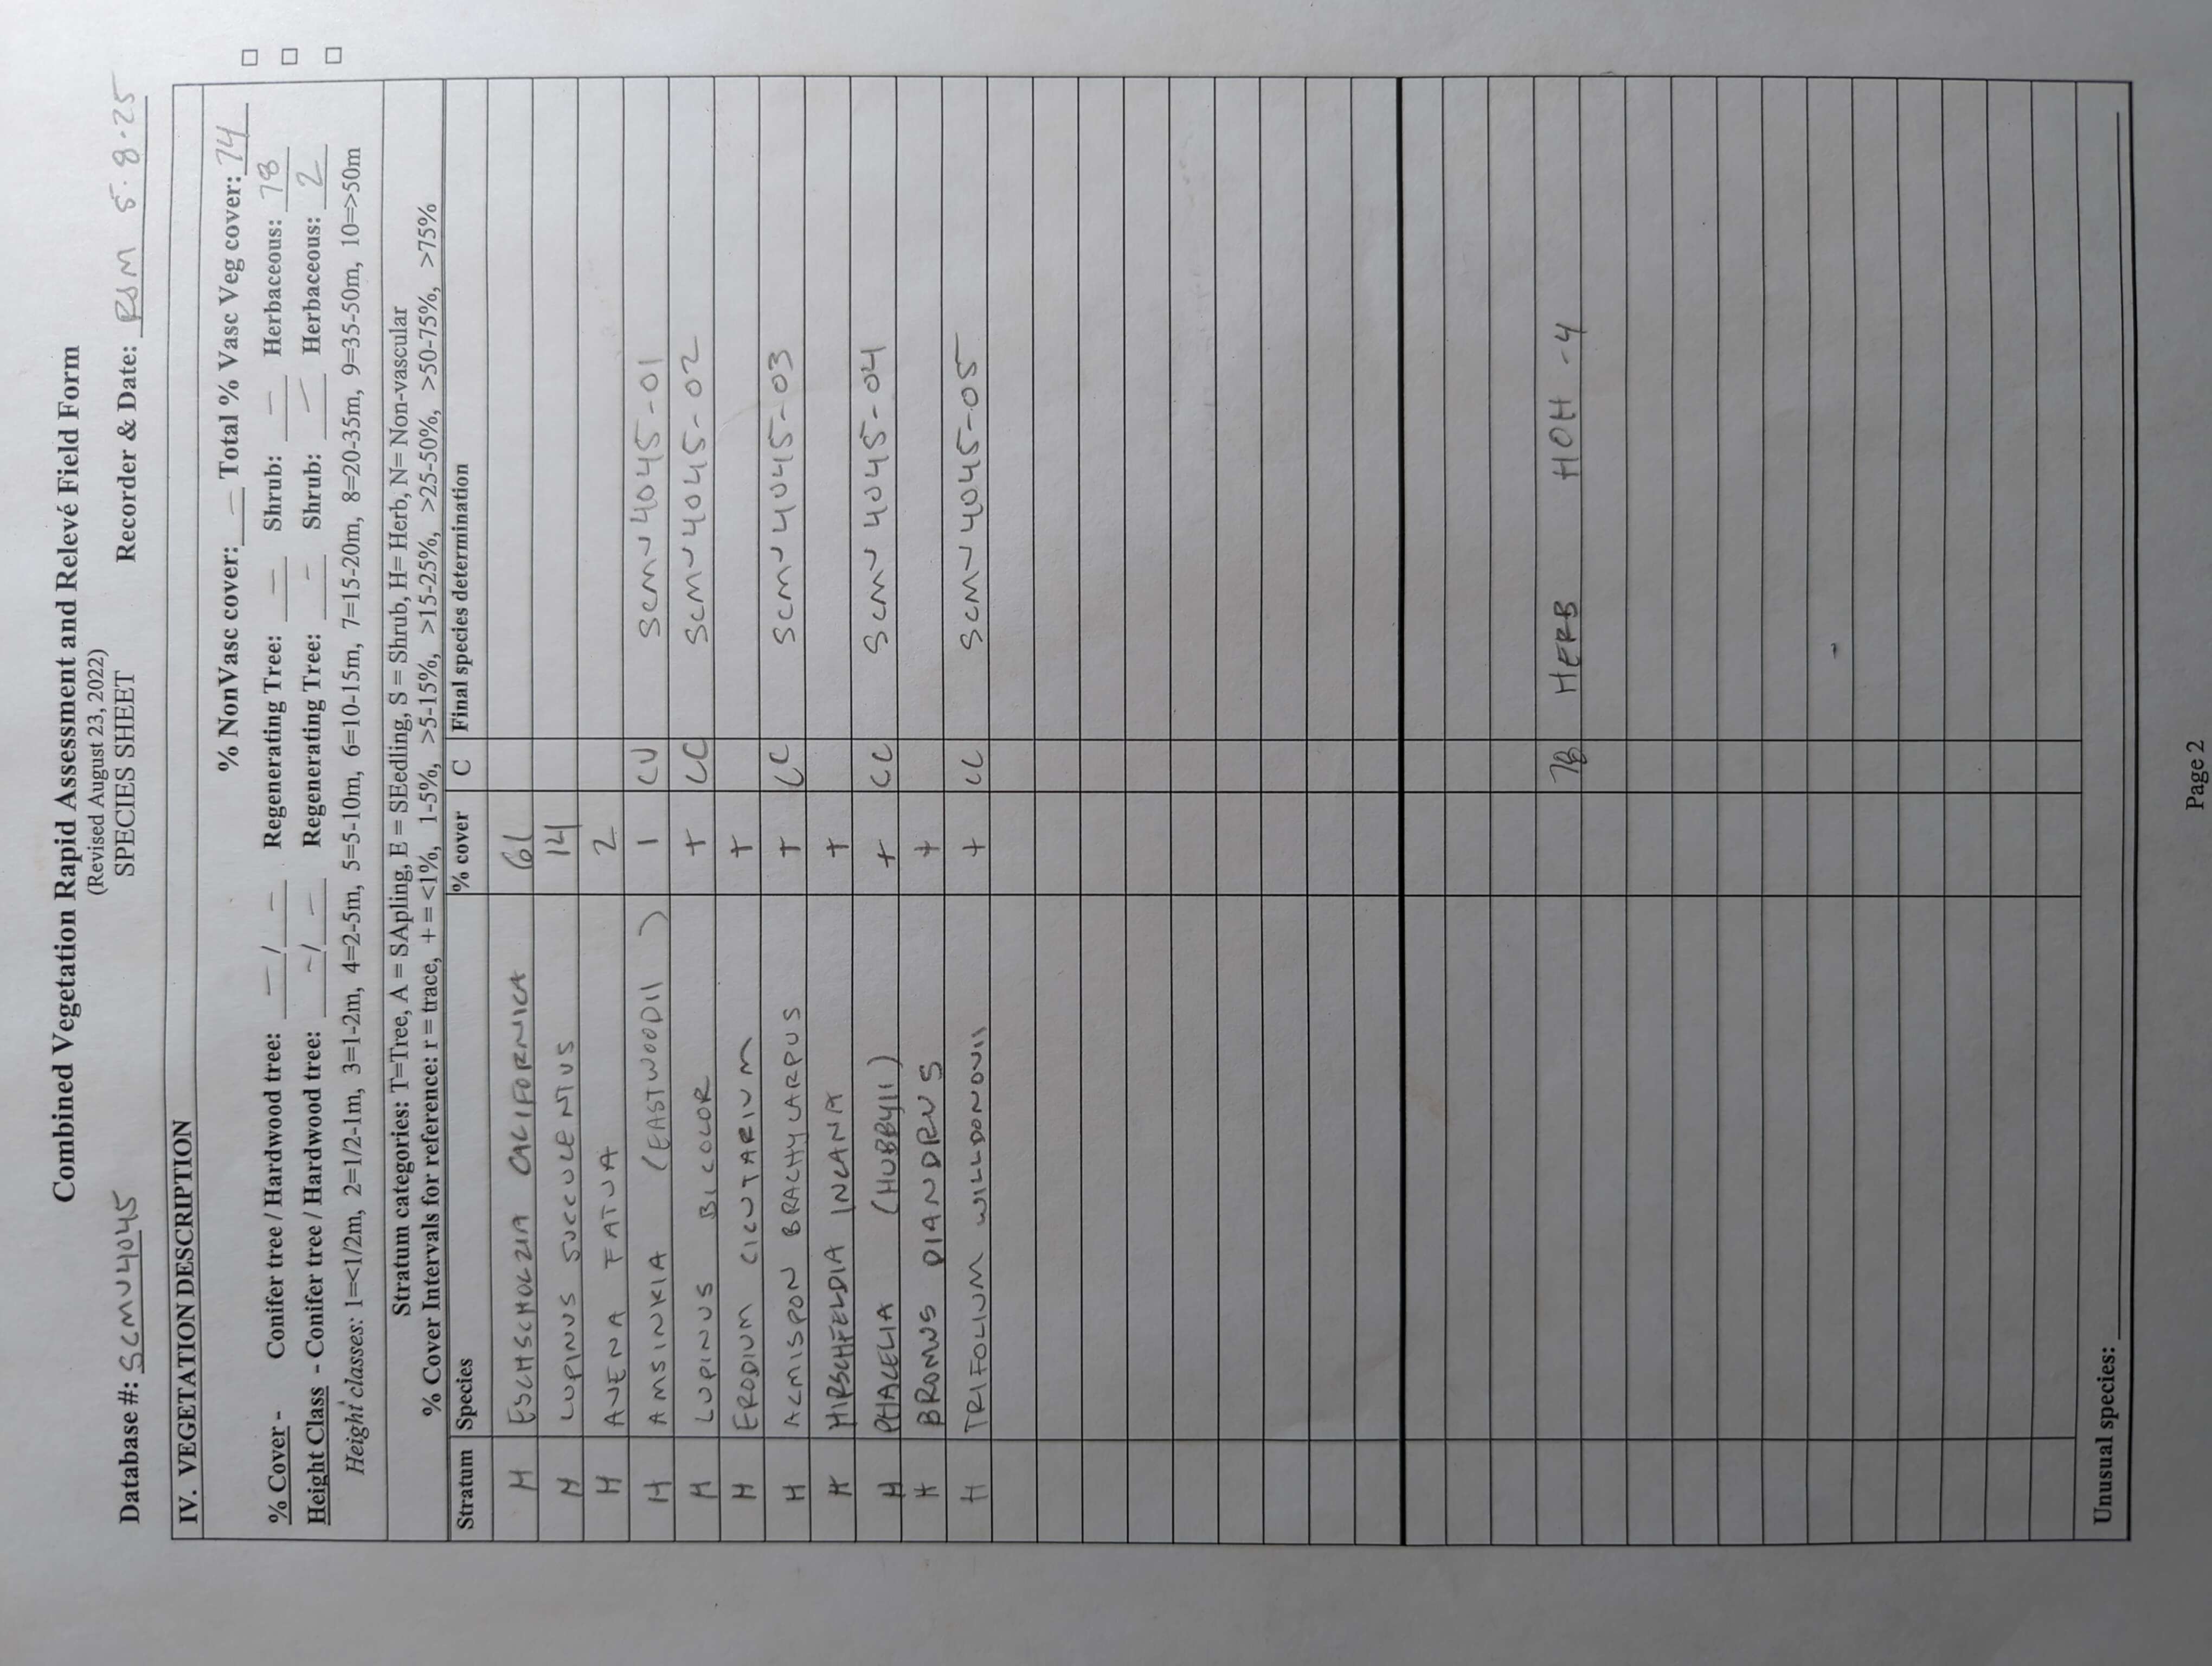 Combined Vegetation Rapid Assessment and Relevé Field Form
(Revised August 23, 2022)
SPECIES SHEET
Database #: SCMV4045 Recorder & Date: RSM 5.8.25
IV. VEGETATION DESCRIPTION
% NonVasc cover: — Total % Vasc Veg cover: 74
% Cover - Conifer tree / Hardwood tree: — / — Regenerating Tree: — Shrub: — Herbaceous: 78 □
Height Class - Conifer tree / Hardwood tree: - / — Regenerating Tree: - Shrub: — Herbaceous: 2 □
Height classes: 1=<1/2m, 2=1/2-1m, 3=1-2m, 4=2-5m, 5=5-10m, 6=10-15m, 7=15-20m, 8=20-35m, 9=35-50m, 10=>50m
Stratum categories: T=Tree, A = SApling, E = SEedling, S = Shrub, H= Herb, N= Non-vascular
% Cover Intervals for reference: r = trace, + = <1%, 1-5%, >5-15%, >15-25%, >25-50%, >50-75%, >75%
Stratum Species % cover C Final species determination
H ESCHSCHOLZIA CALIFORNICA 61
H LUPINUS SUCCULENTUS 14
H AVENA FATUA 2
H AMSINKIA (EASTWOODII) 1 CU SCMV4045-01
H LUPINUS BICOLOR + CC SCMV4045-02
H ERODIUM CICUTARIUM +
H ACMISPON BRACHYCARPUS + CC SCMV4045-03
H HIRSCHFELDIA INCANA +
H PHACELIA (HUBBYII) + CC SCMV4045-04
H BROMUS DIANDRUS +
H TRIFOLIUM WILLDONOVII + CC SCMV4045-05
78 HERB HOH -4
Unusual species:
Page 2